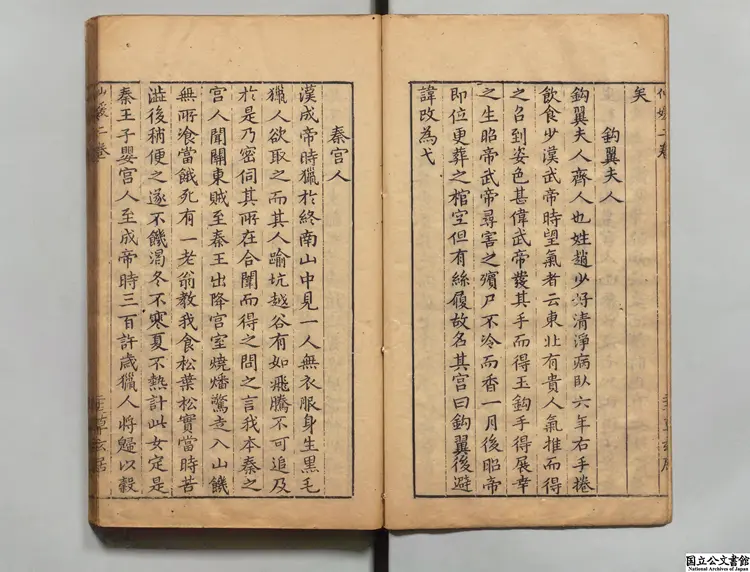 矣
鈎翼夫人
鈎翼夫人齊人也姓趙少好清淨病臥六年右手捲
飲食少漢武帝時望氣者云東北有貴人氣推而得
之召到姿色甚偉武帝發其手而得玉鈎手得展幸
之生昭帝武帝尋害之殯尸不冷而香一月後昭帝
即位更葬之棺空但有絲履故名其宮曰鈎翼後避
諱改為弋
秦宮人
漢成帝時獵於終南山中見一人無衣服身生黑毛
獵人欲取之而其人踰坑越谷有如飛騰不可追及
於是乃密伺其所在合圍而得之問之言我本秦之
宮人聞關東賊至秦王出降宮室燒燔驚走入山饑
無所飡當餓死有一老翁教我食松葉松實當時苦
澁後稍便之遂不饑渴冬不寒夏不熱計此女定是
秦王子嬰宮人至成帝時三百許歲獵人將歸以穀
仙媛二卷
草玄居
国立公文書館
National Archives of Japan